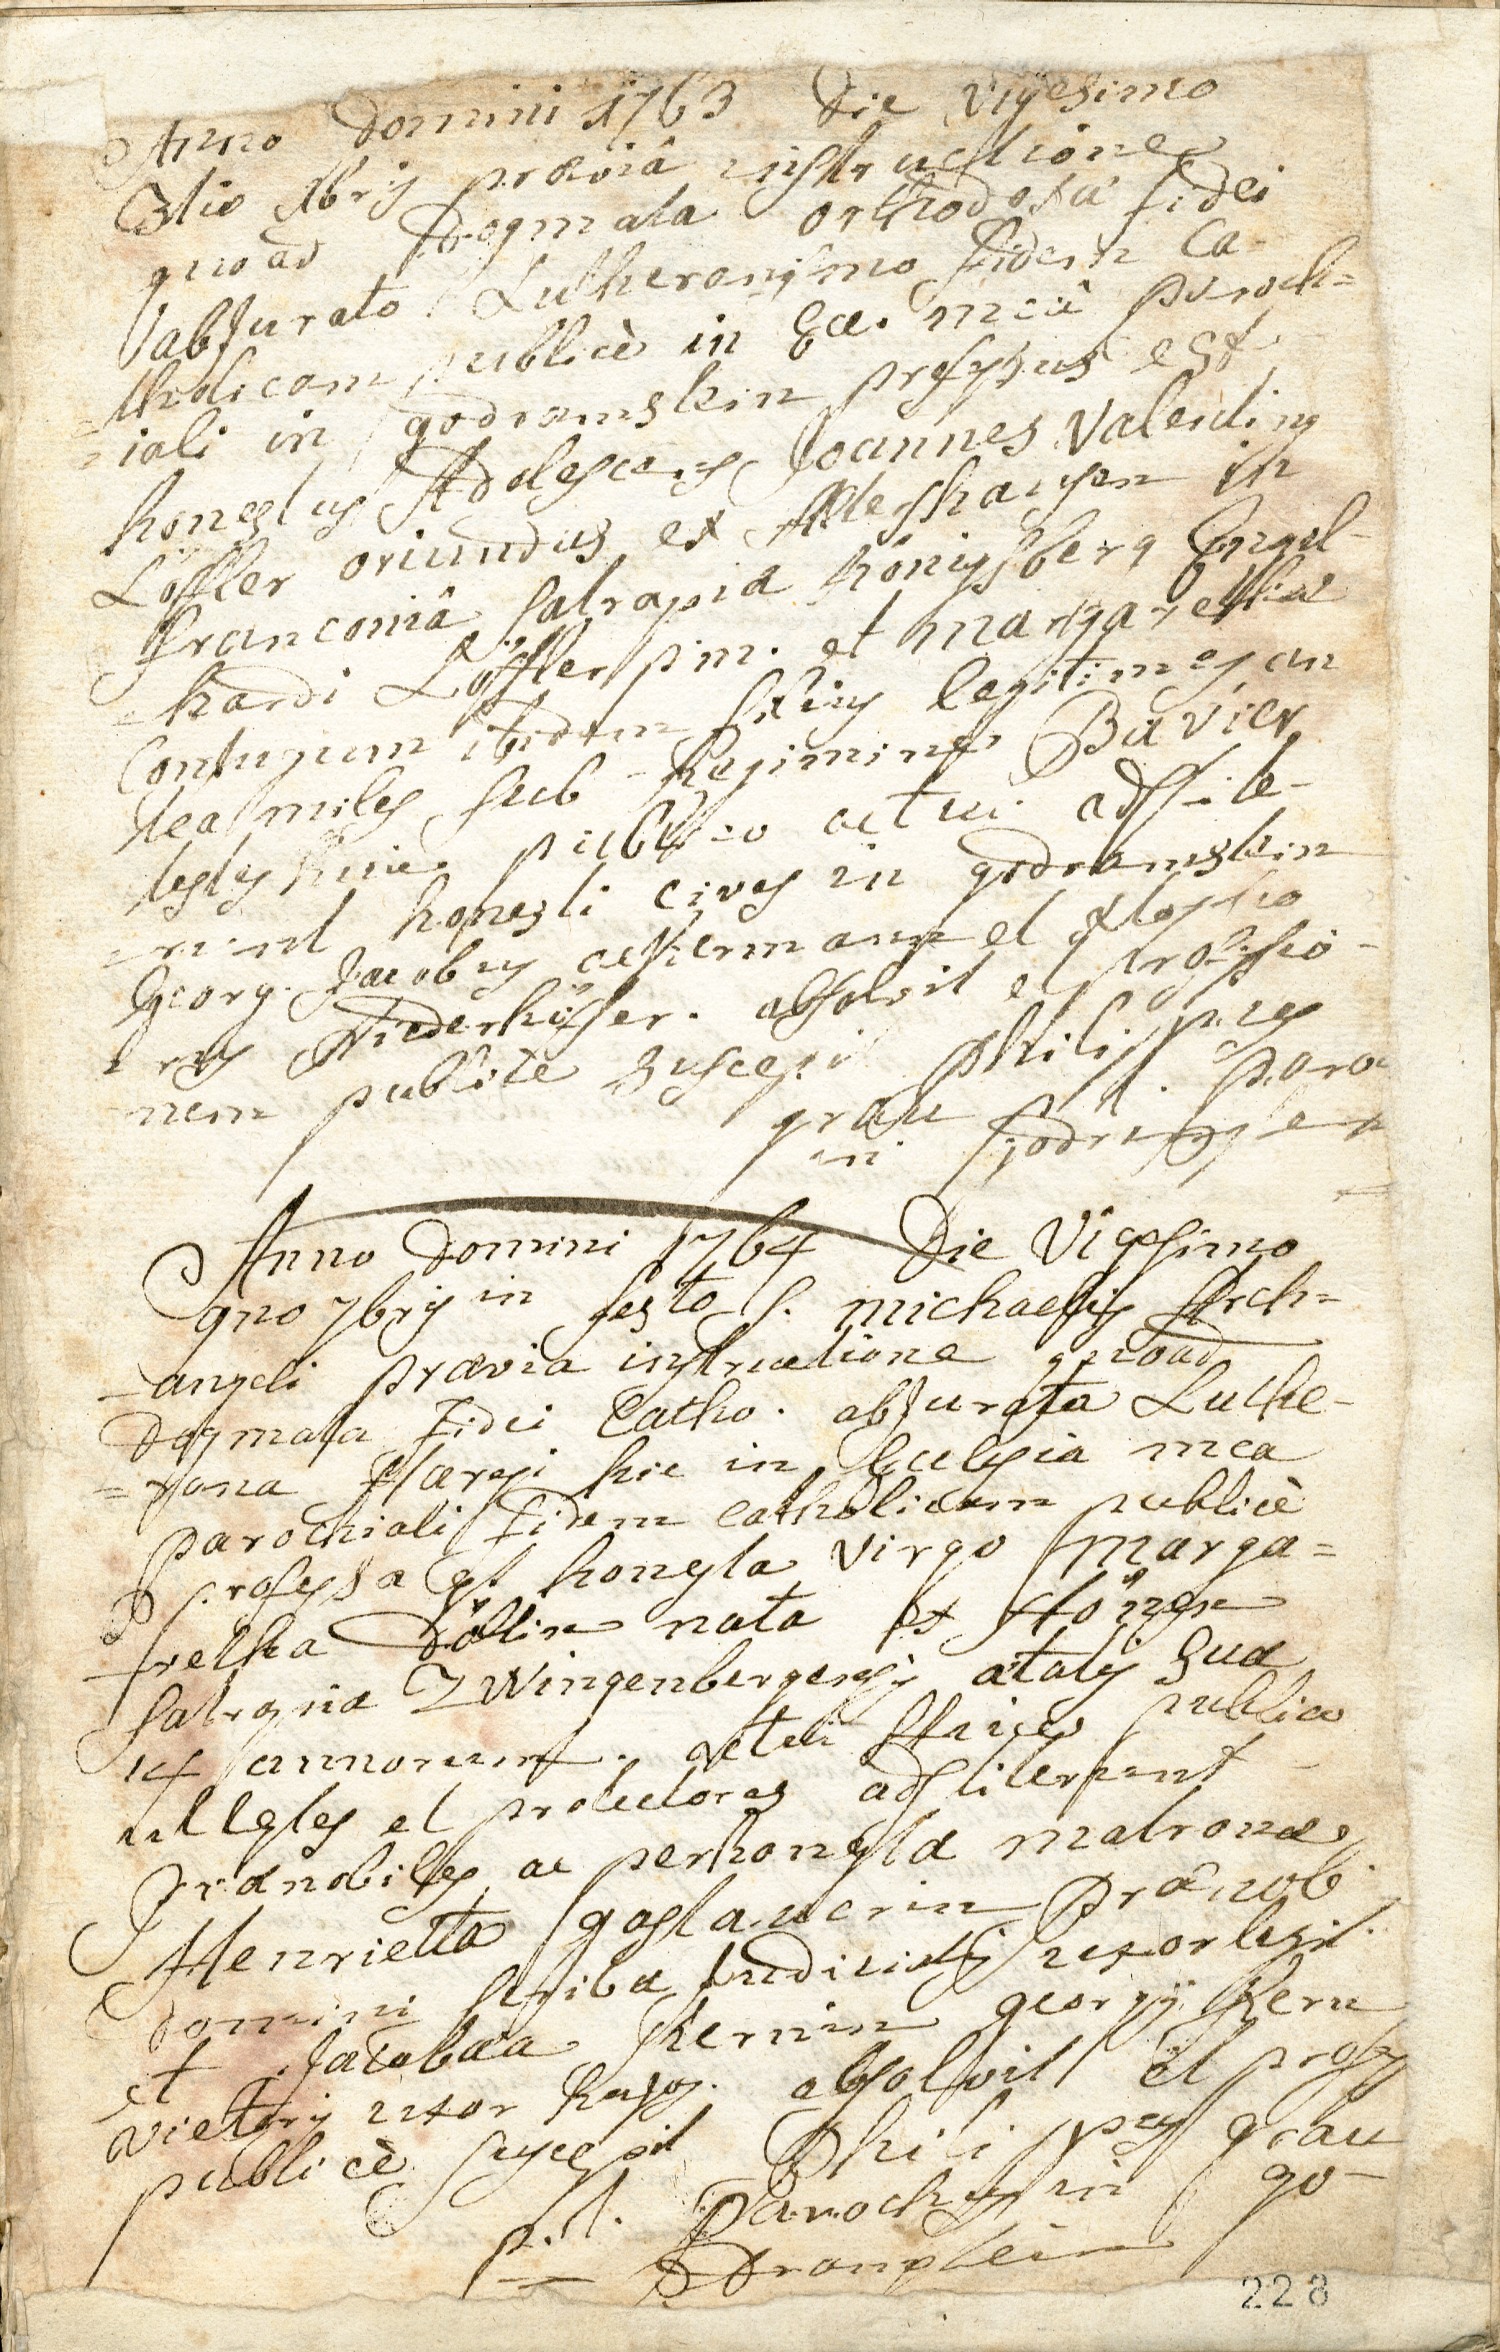 Anno Domini 1763 die vigesimo
3tio xbris prævia instructione
quoad Dogmata orthodoxæ fidei
abjurato Lutheranismo fidem Ca-
tholicam publicè in Eccl. meâ paroch=
iali in godramstein professus est
honestus Adolescens Joannes Valentin9
Löffler oriundus ex Alleshausen in
franconiâ satrapia Königsberg Engel-
hardi Löffler p.m. et margarethæ
Conjugum ibidem filius legitimus, an
tea miles sub Regimine Bavier
testes huic publico actui adstite-
runt honesti cives in godramstein
Georg. Jacobus ackermann et
Niederhöffer. absolvit et professio-
nem publice suscepit philippus
grau p.t. paro
in godramstein
Anno Domini 1764 Die Vigesimo
9no 7bris in festo S. michaelis Arch=
angeli prævia instructione quoad
Dogmata Fidei Catho. abjurata Luthe-
rana Hæresi hic in Ecclesia mea
parochiali Fidem catholicam publicè
professa est honesta virgo Marga=
retha nata ex
satrapiæ Zwingenbergensis ætatis suæ
annorum. actui huic publico
ut testes et protectores adstiterunt
Prænobiles ac perhonestæ matronæ
Henrietta prænob
Domini scribæ judicialis uxor legit.
et Jacobæa Kernin georgij Kern
vietoris uxor absolvit et profess
publicè suscepit Philippus grau
p.t. Parochus in go-
dramstein
228